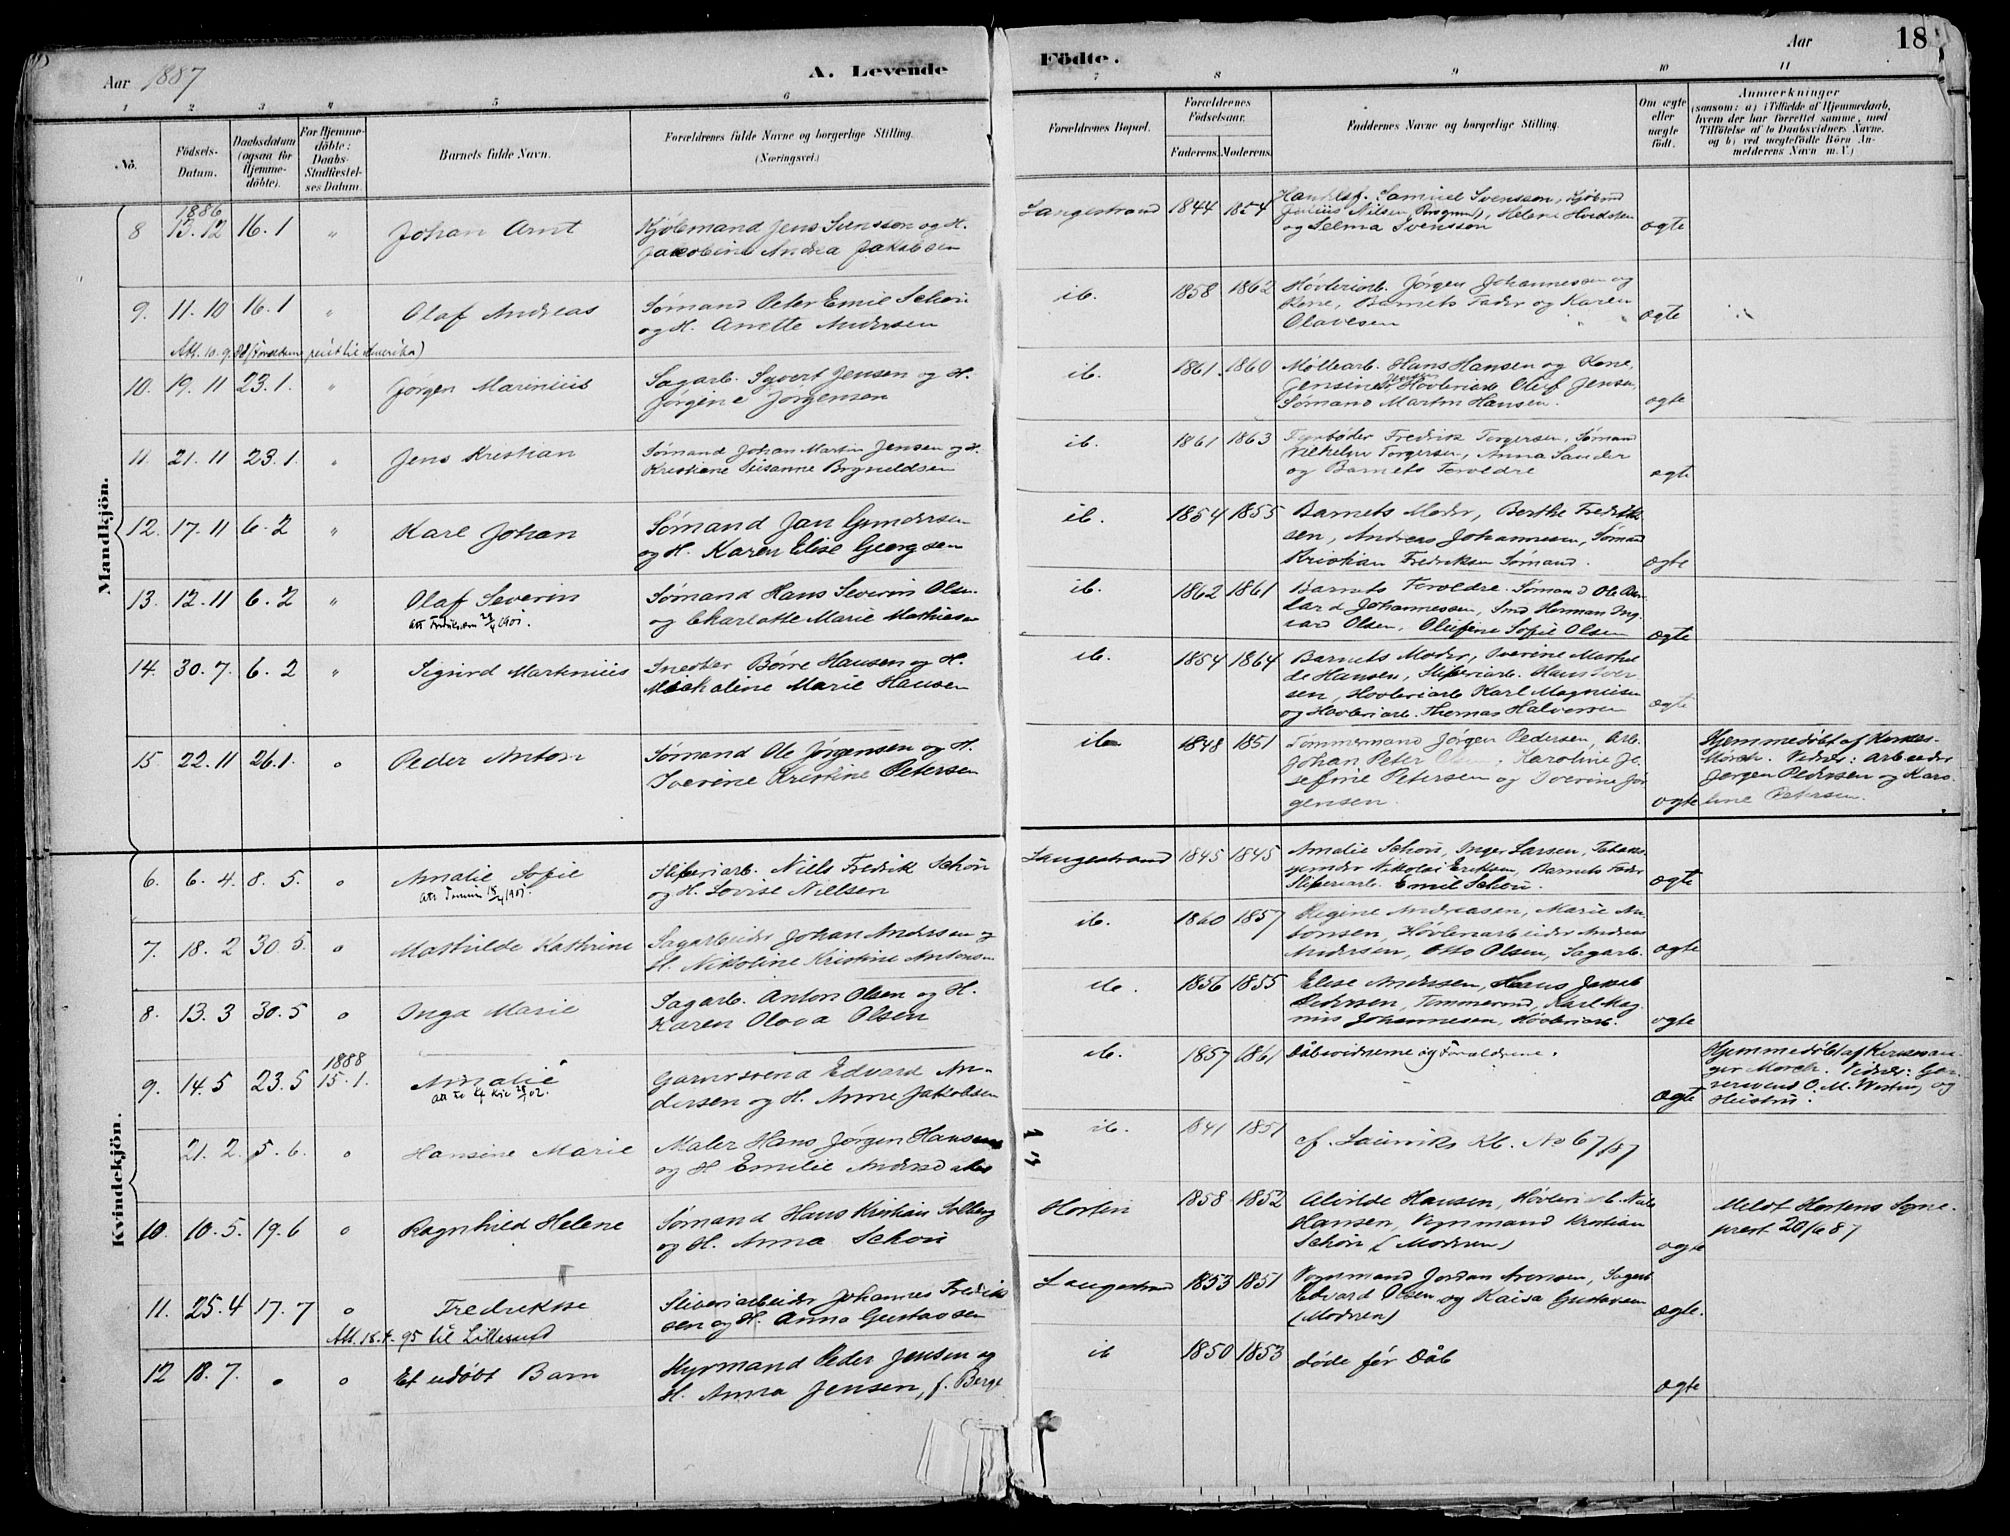 Aar 1887
A. Levende
Födte.
Aar
18
1 2 3 4 5 6 7 8 9 10 11
No.
Födsels-
Datum.
Daabsdatum
(ogsaa for
Hjemme-
döbte).
For Hjemme-
döbte:
Daabs-
Stadfæstel-
ses Datum.
Barnets fulde Navn.
Forældrenes fulde Navne og borgerlige Stilling.
(Næringsvei.)
Forældrenes Bopæl.
Forældrenes
Födselsaar.
Faderens. Moderens.
Faddernes Navne og borgerlige Stilling.
Om ægte
eller
uægte
födt.
Anmærkninger
(saasom: a) i Tilfælde af Hjemmedaab,
hvem der har forrettet samme, med
Tilföielse af to Daabsvidners Navne.
og b) ved uægtefödte Börn An-
melderens Navn m. V.)
Mandkjön.
1886
8 13.12 16.1 " Johan Arnt
Kjølemand Jens Svensson og H.
Jacobine Andrea Jakobsen
Langestrand 1844 1854
Samuel Svensson,
Julius Nilsen (Porsgrund), Helene
og Selma Svensson
ægte
9. 11.10 16.1 " Olaf Andreas
Sømand Peter Emil Schou
og H. Anette Andersen
ib. 1858 1862
Høvleriarb. Jørgen Johannessen og
Kone, Barnets Fader og Karen
Olavesen
ægte
Att. 10.9. til Amerika)
10. 19.11 23.1. " Jørgen Marinius
Sagarb. Syvert Jensen og H.
Jørgine Jørgensen
ib. 1861. 1860
Møllearb. Hans Hansen og Kone,
Jensine Jensen Høvleriarb Oluf Jensen,
Sømand Martin Hansen.
ægte
11. 21.11 23.1. " Jens Kristian
Sømand Johan Martin Jensen og H.
Kristiane Susanne Bryneldsen
ib. 1861 1863
Fyrbøder Fredrik Torgersen, Sømand
Vilhelm Torgersen, Anna Sander
og Barnets Foreldre
ægte
12. 17.11 6.2 " Karl Johan
Sømand Jan Gundersen
og H. Karen Elise Georgsen
ib. 1854 1855
Barnets Moder, Berthe Fredrik-
sen, Andreas Johannesen, Sømand
Kristian Fredriksen Sømand.
ægte
13. 12.11 6.2 " Olaf Severin
Sømand Hans Severin Olsen
og Charlotte Marie Mathiesen
ib. 1862 1861
Barnets Foreldre. Sømand Ole
Johannessen, Smed Herman Ing-
vard Olsen, Olufine Sofie Olsen
ægte
14. 30.7. 6.2 " Sigurd Martinius
Snedker Børre Hansen og H.
Michaline Marie Hansen
ib. 1854 1864
Barnets Moder, Iverine Mathil-
de Hansen, Sliberiarb. Hans Iver-
sen, Høvleriarb Karl Magnusen
og Høvleriarb. Thomas Halvorsen
ægte
15. 22.11 26.1. o Peder Anton
Sømand Ole Jørgensen og H.
Iverine Kristine Petersen
ib 1848 1851
Tømmermand Jørgen Pedersen, Arb.
Johan Peter Olsen, Karoline Jo-
sefine Petersen og Iverine Jør-
gensen.
ægte
Hjemmedøbt af
Mørch. Vidner: Arbeider
Jørgen Pedersen og Karo-
line Petersen.
Kvindekjön.
6. 6.4. 8.5. o Amalie Sofie
Sliberiarb. Niels Fredrik Schou
og H. Lovise Nielsen
Langestrand 1845 1845
Amalie Schou, Inger Larsen, Tobaks-
spinder Nikolai Eriksen, Barnets Fader
Sliberiarb. Emil Schou.
ægte
7. 18.2 30.5. o Mathilde Kathrine
Sagarbeider Johan Andersen og
H. Nikoline Kristine Antonsen
ib. 1860 1857
Regine Andreasen, Marie An-
tonsen, Høvleriarbeider Andreas
Andersen, Otto Olsen, Sagarb.
ægte
8. 13.3 30.5 o Inga Marie
Sagarb. Anton Olsen og H.
Karen Olava Olsen
ib. 1856 1855
Elise Andersen, Hans Jakob
Pedersen, Tømmermd, Karl Mag-
nus Johannesen, Høvleriarb.
ægte
1888
9. 14.5 23.5 15.1. Amalie
Garversvend Edvard An-
dersen og H. Anne Jakobsen
ib. 1857 1861
Dåbsvidnerne og Forældrene.
ægte
Hjemmedøbt af
Mørch. Vidner: Gar-
versvend O. M. og
Hustru.
21.2. 5.6. o Hansine Marie
Maler Hans Jørgen Hansen
og H Emilie Andersdatter
ib. 1841 1851
cf. Laurviks Kb. No 67/87
10. 10.5. 19.6 o Ragnhild Helene
Sømand Hans Kristian Solberg
og H. Anna Schou
Horten 1858 1852
Alvilde Hansen, Høvleriarb. Nils
Hansen, Vognmand Kristian
Schou (Moderen)
ægte
Meldt Hortens Sogne-
prest 20/6 87
11. 25.4 17.7 o Fredrikke
Att. 18.4.95 til Lillesand
Sliberiarbeider Johannes Fredrik-
sen og H. Anna Gustavsen
Langestrand 1853 1851
Vognmand Jordan Aronsen, Sagarb
Edvard Olsen og Kaisa Gustavsen
(Moderen)
ægte.
12 18.7. o o Et udøbt Barn
Hyrmand Peder Jensen og
H. Anna Jensen, f. Berge
ib 1850 1853
døde før Dåb
ægte